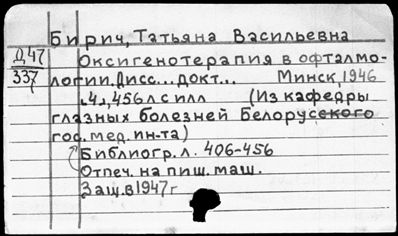 Бирич, Татьяна Васильевна
Д47
337
Оксигенотерапия в офталмо-
логии. Дисс... докт... Минск, 1946
,4, 456 л с илл (Из кафедры
глазных болезней Белорусского
гос. мед. ин-та)
Библиогр. л. 406-456
Отпеч. на пиш. маш.
Защ. в 1947 г